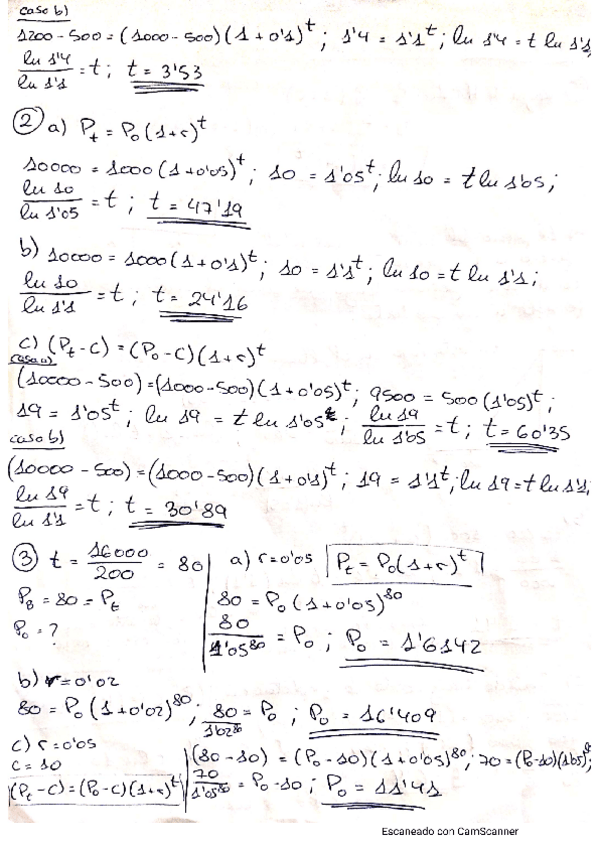 caso b)
1200 - 500 = (1000 - 500)(1 + 0'1)^t ; 1'4 = 1'1^t ; ln 1'4 = t ln 1'1
ln 1'4 / ln 1'1 = t ; t = 3'53
② a) Pt = P0(1+r)^t
10000 = 1000 (1 + 0'05)^t ; 10 = 1'05^t ; ln 10 = t ln 1'05 ;
ln 10 / ln 1'05 = t ; t = 47'19
b) 10000 = 1000 (1 + 0'1)^t ; 10 = 1'1^t ; ln 10 = t ln 1'1 ;
ln 10 / ln 1'1 = t ; t = 24'16
c) (Pt - C) = (P0 - C)(1+r)^t
caso a)
(10000 - 500) = (1000 - 500)(1 + 0'05)^t ; 9500 = 500 (1'05)^t ;
19 = 1'05^t ; ln 19 = t ln 1'05 ; ln 19 / ln 1'05 = t ; t = 60'35
caso b)
(10000 - 500) = (1000 - 500)(1 + 0'1)^t ; 19 = 1'1^t ; ln 19 = t ln 1'1 ;
ln 19 / ln 1'1 = t ; t = 30'89
③ t = 16000 / 200 = 80
P8 = 80 = Pt
P0 = ?
a) r = 0'05 Pt = P0(1+r)^t
80 = P0 (1 + 0'05)^80
80 / 1'05^80 = P0 ; P0 = 1'6142
b) r = 0'02
80 = P0 (1 + 0'02)^80 ; 80 / 1'02^80 = P0 ; P0 = 16'409
c) r = 0'05
c = 10
(Pt - C) = (P0 - C)(1+r)^t
(80 - 10) = (P0 - 10)(1 + 0'05)^80 ; 70 = (P0 - 10)(1'05)^80 ;
70 / 1'05^80 = P0 - 10 ; P0 = 11'41
Escaneado con CamScanner